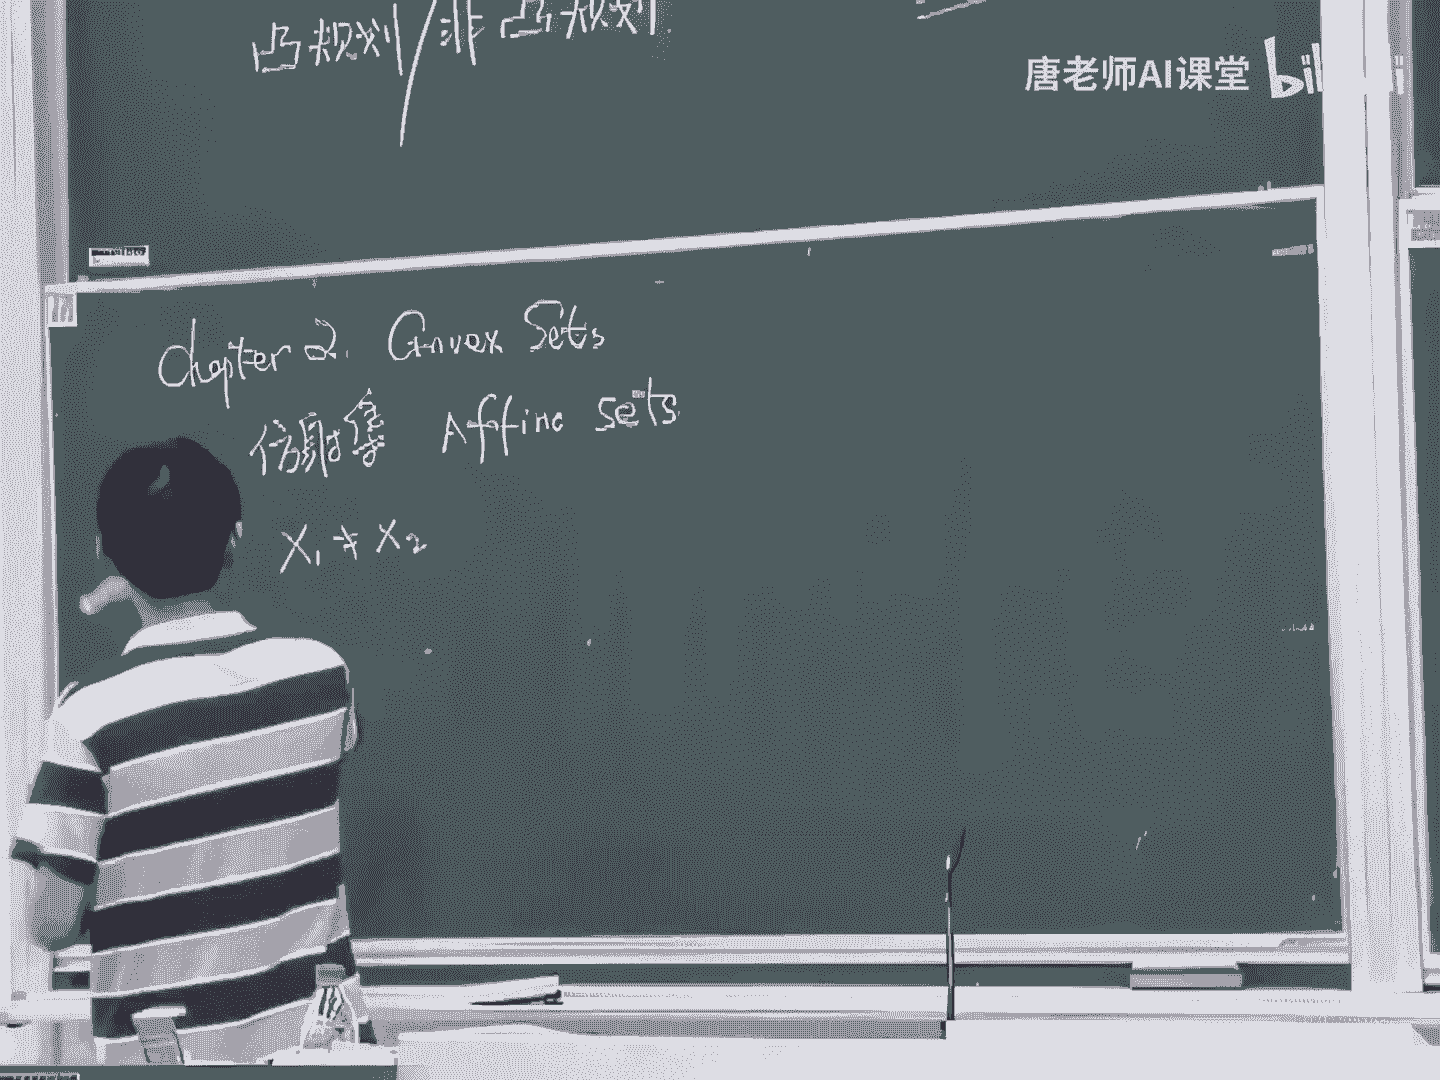 凸规划/非凸规划
唐老师AI课堂 bili
Chapter 2. Convex Sets
仿射集 Affine sets
X₁ ≠ X₂